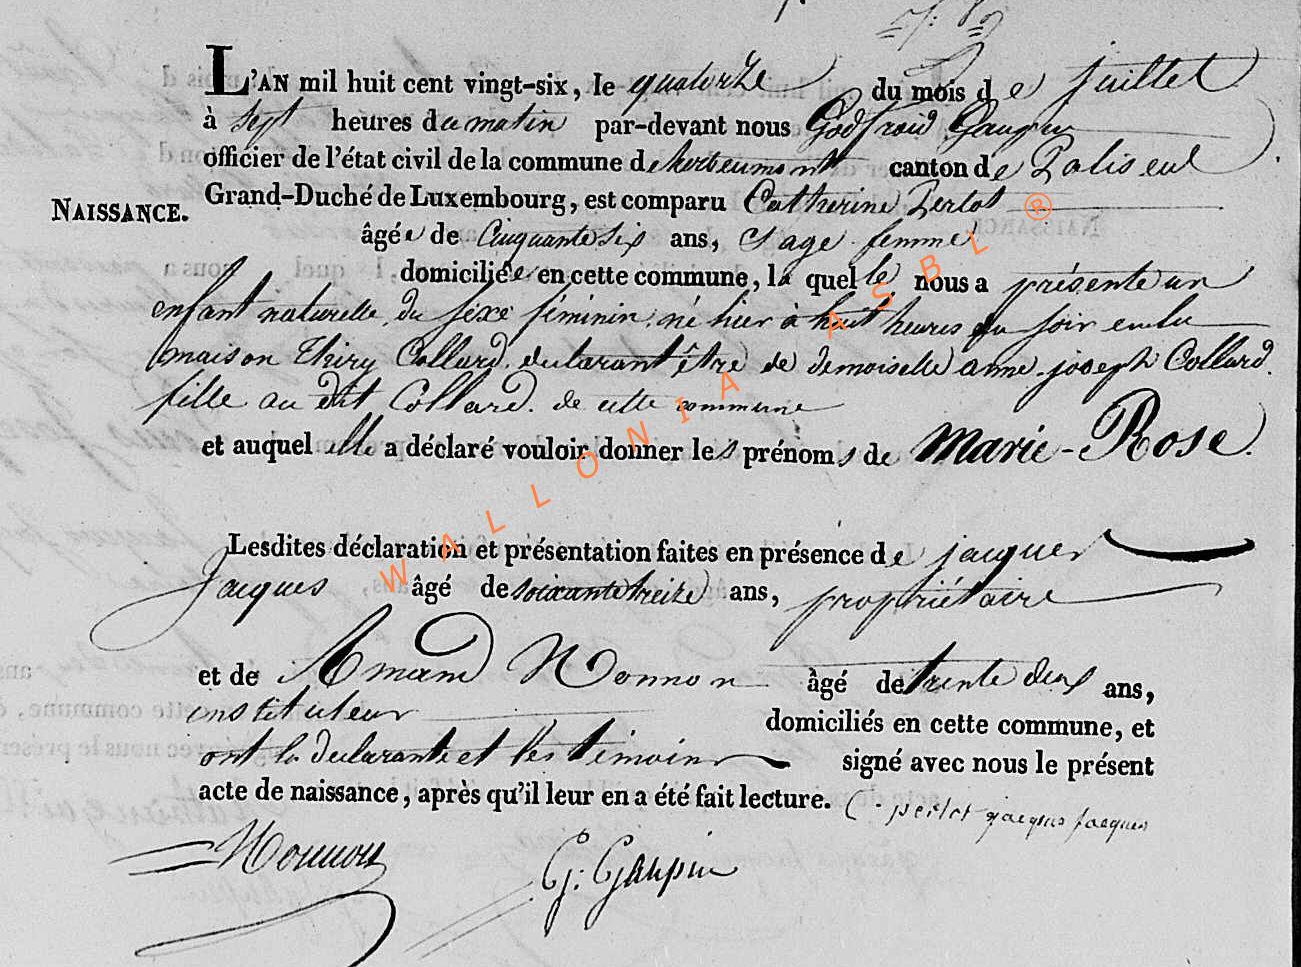 L'AN mil huit cent vingt-six, le quatorze du mois de juillet
à sept heures du matin par-devant nous Godfroid Gaupin
officier de l'état civil de la commune de herbeumont canton de Paliseul
NAISSANCE. Grand-Duché de Luxembourg, est comparu Catherine Perlot
âgée de Cinquante six ans, Sage femme
domiciliée en cette commune, la quelle nous a présente un
enfant naturelle du sexe féminin né hier à huit heures du soir en la
maison Thiry Collard declarant être de demoiselle anne joseph Collard.
fille au dit Collard. de cette commune
et auquel elle a déclaré vouloir donner les prénoms de Marie-Rose.
Lesdites déclaration et présentation faites en présence de jacques
Jacques âgé de soixante treize ans, propriétaire
et de Amand Nonnon âgé de trente deux ans,
instituteur domiciliés en cette commune, et
ont la declarante et les témoins signé avec nous le présent
acte de naissance, après qu'il leur en a été fait lecture. C. perlot jacques jacques
Nonnon G: Gaupin
WALLONIA ASBL ®